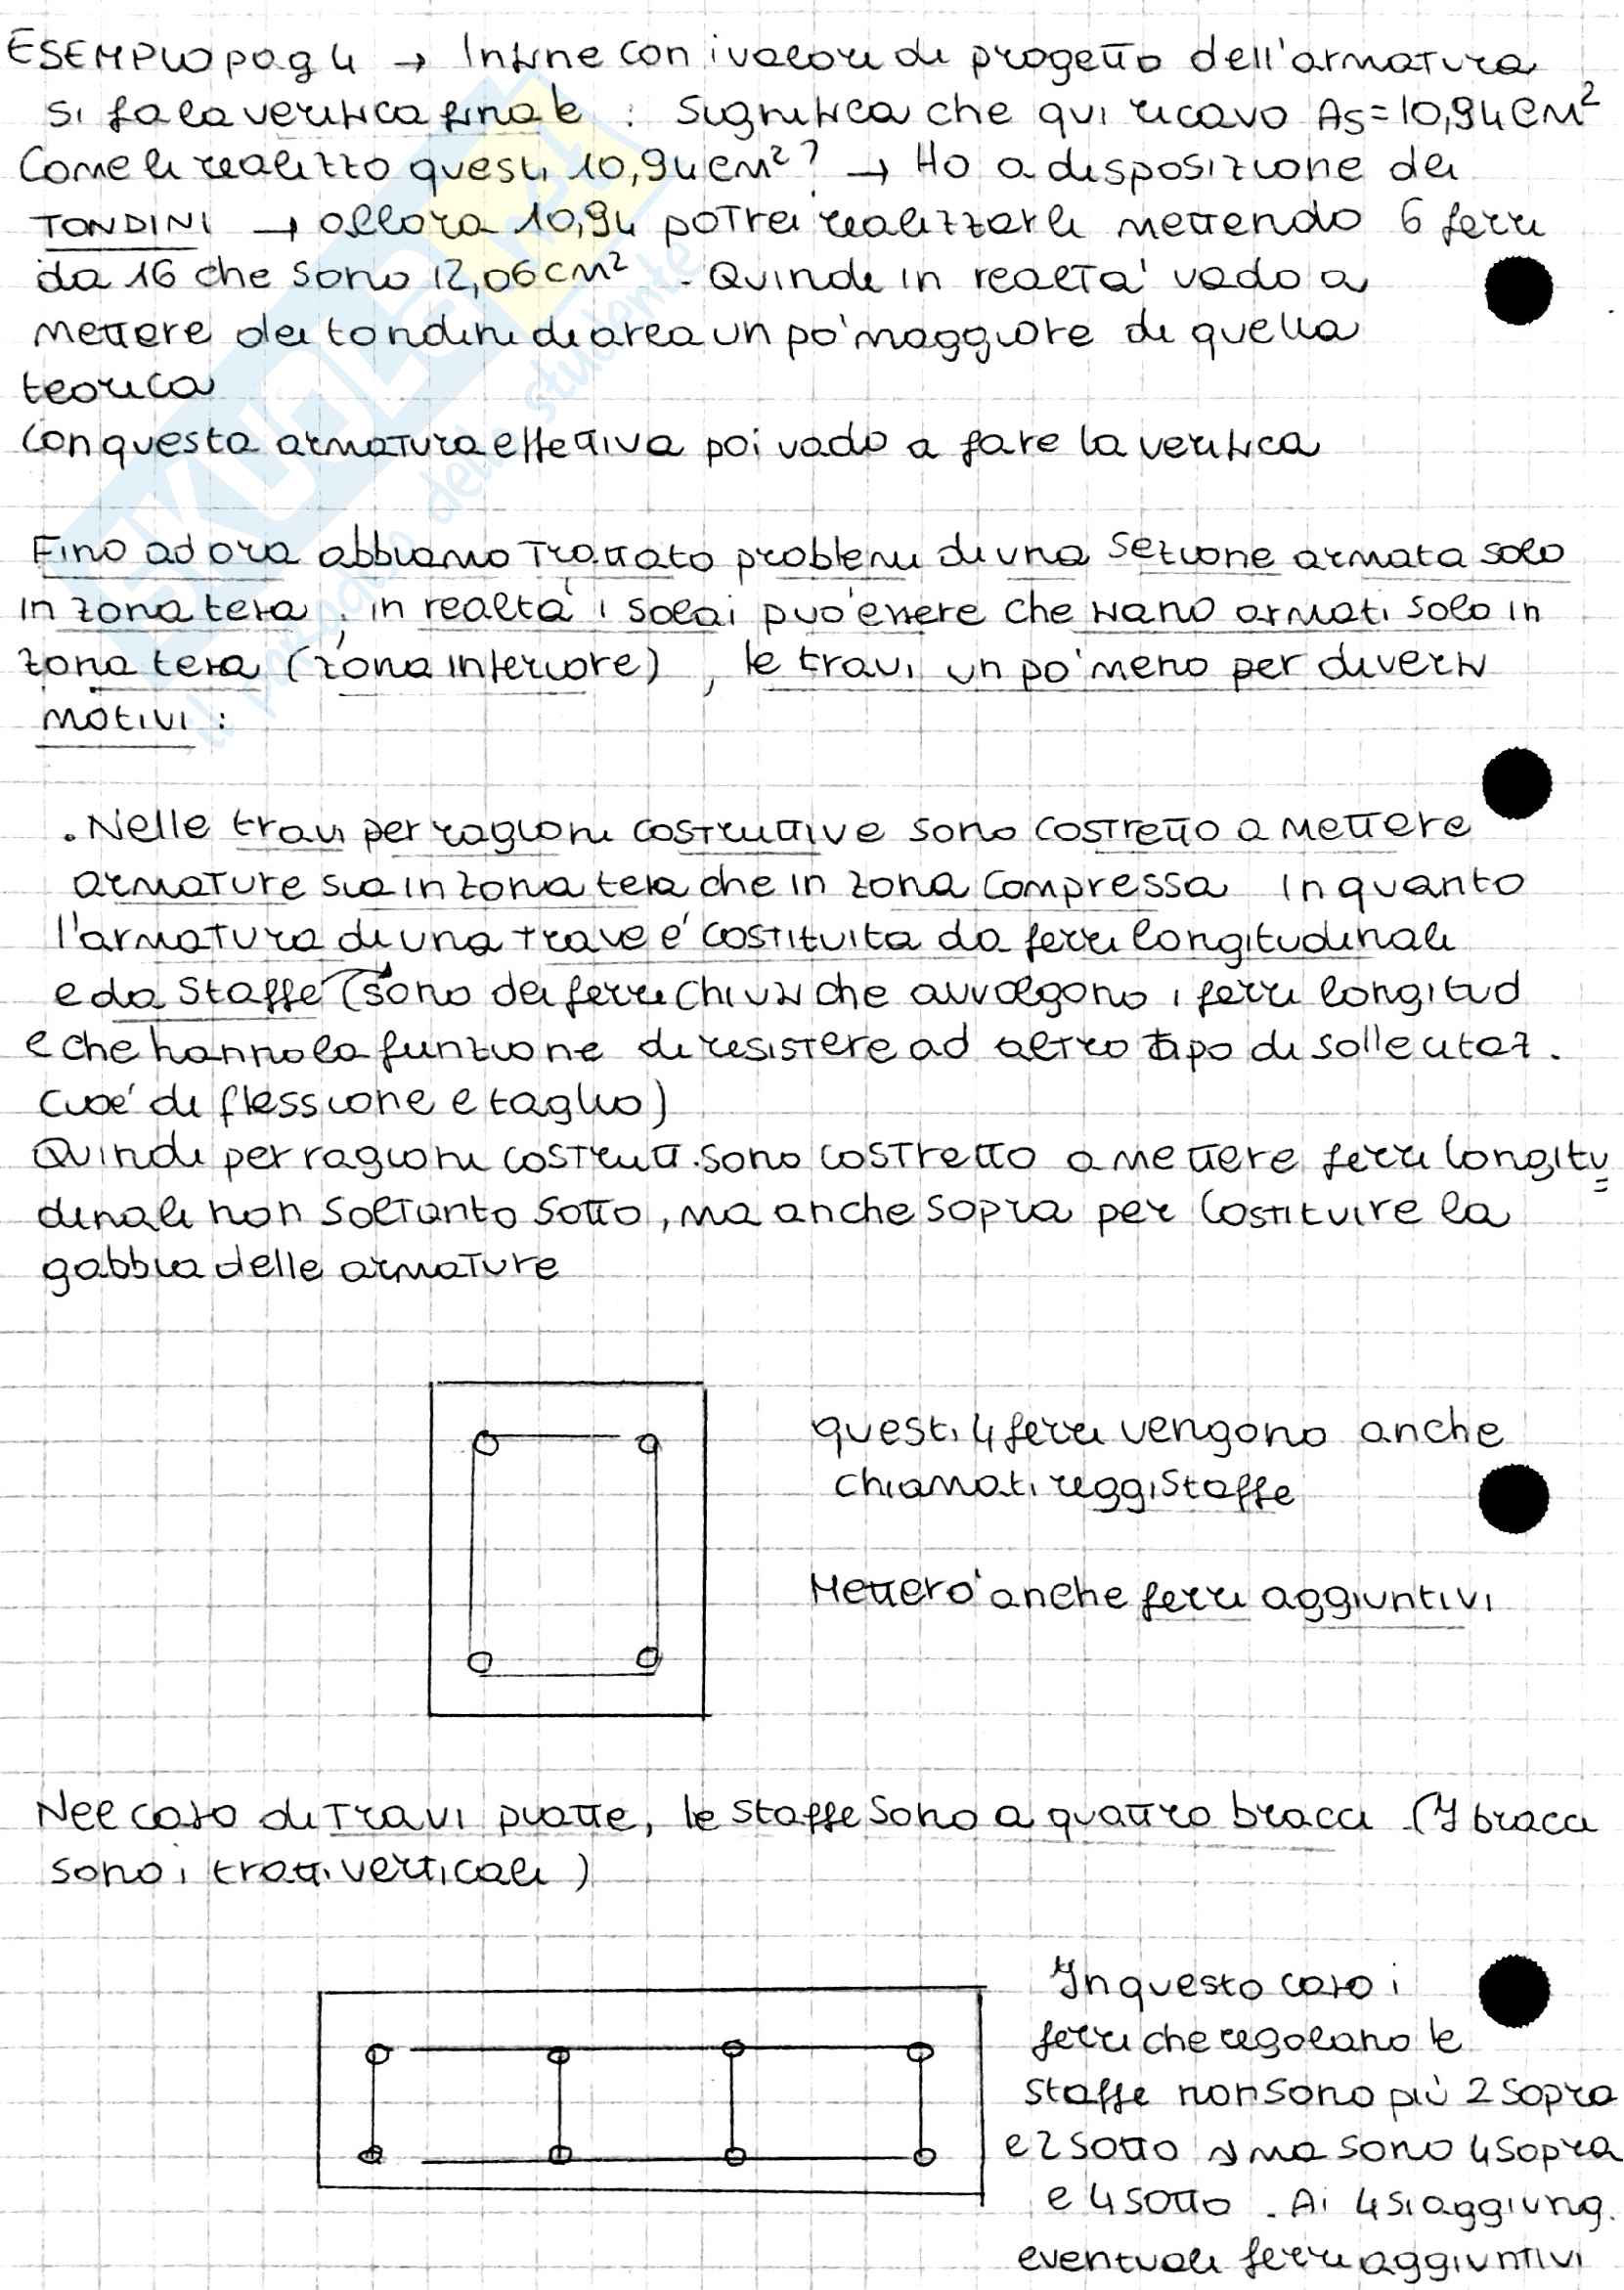 ESEMPIO pag 4 → Infine con i valori di progetto dell'armatura
si fa la verifica finale : Significa che qui ricavo As = 10,94 cm²
Come li realizzo questi 10,94 cm² ? → Ho a disposizione dei
TONDINI → allora 10,94 potrei realizzarli mettendo 6 ferri
da 16 che sono 12,06 cm² . Quindi in realtà vado a
mettere dei tondini di area un po' maggiore di quella
teorica
Con questa armatura effettiva poi vado a fare la verifica
Fino ad ora abbiamo trattato problemi di una sezione armata solo
in zona tesa ; in realtà i solai può essere che siano armati solo in
zona tesa (zona inferiore) , le travi un po' meno per diversi
motivi :
. Nelle travi per ragioni costruttive sono costretto a mettere
armature sia in zona tesa che in zona compressa in quanto
l'armatura di una trave è costituita da ferri longitudinali
e da staffe (sono dei ferri chiusi che avvolgono i ferri longitud
e che hanno la funzione di resistere ad altro tipo di sollecitaz.
cioè di flessione e taglio)
Quindi per ragioni costrutt. sono costretto a mettere ferri longitu
dinali non soltanto sotto, ma anche sopra per costituire la
gabbia delle armature
questi 4 ferri vengono anche
chiamati reggistaffe
Metterò anche ferri aggiuntivi
Nel caso di travi piatte, le staffe sono a quattro bracci (I bracci
sono i tratti verticali)
In questo caso i
ferri che regolano le
staffe non sono più 2 sopra
e 2 sotto ma sono 4 sopra
e 4 sotto . Ai 4 si aggiung.
eventuali ferri aggiuntivi